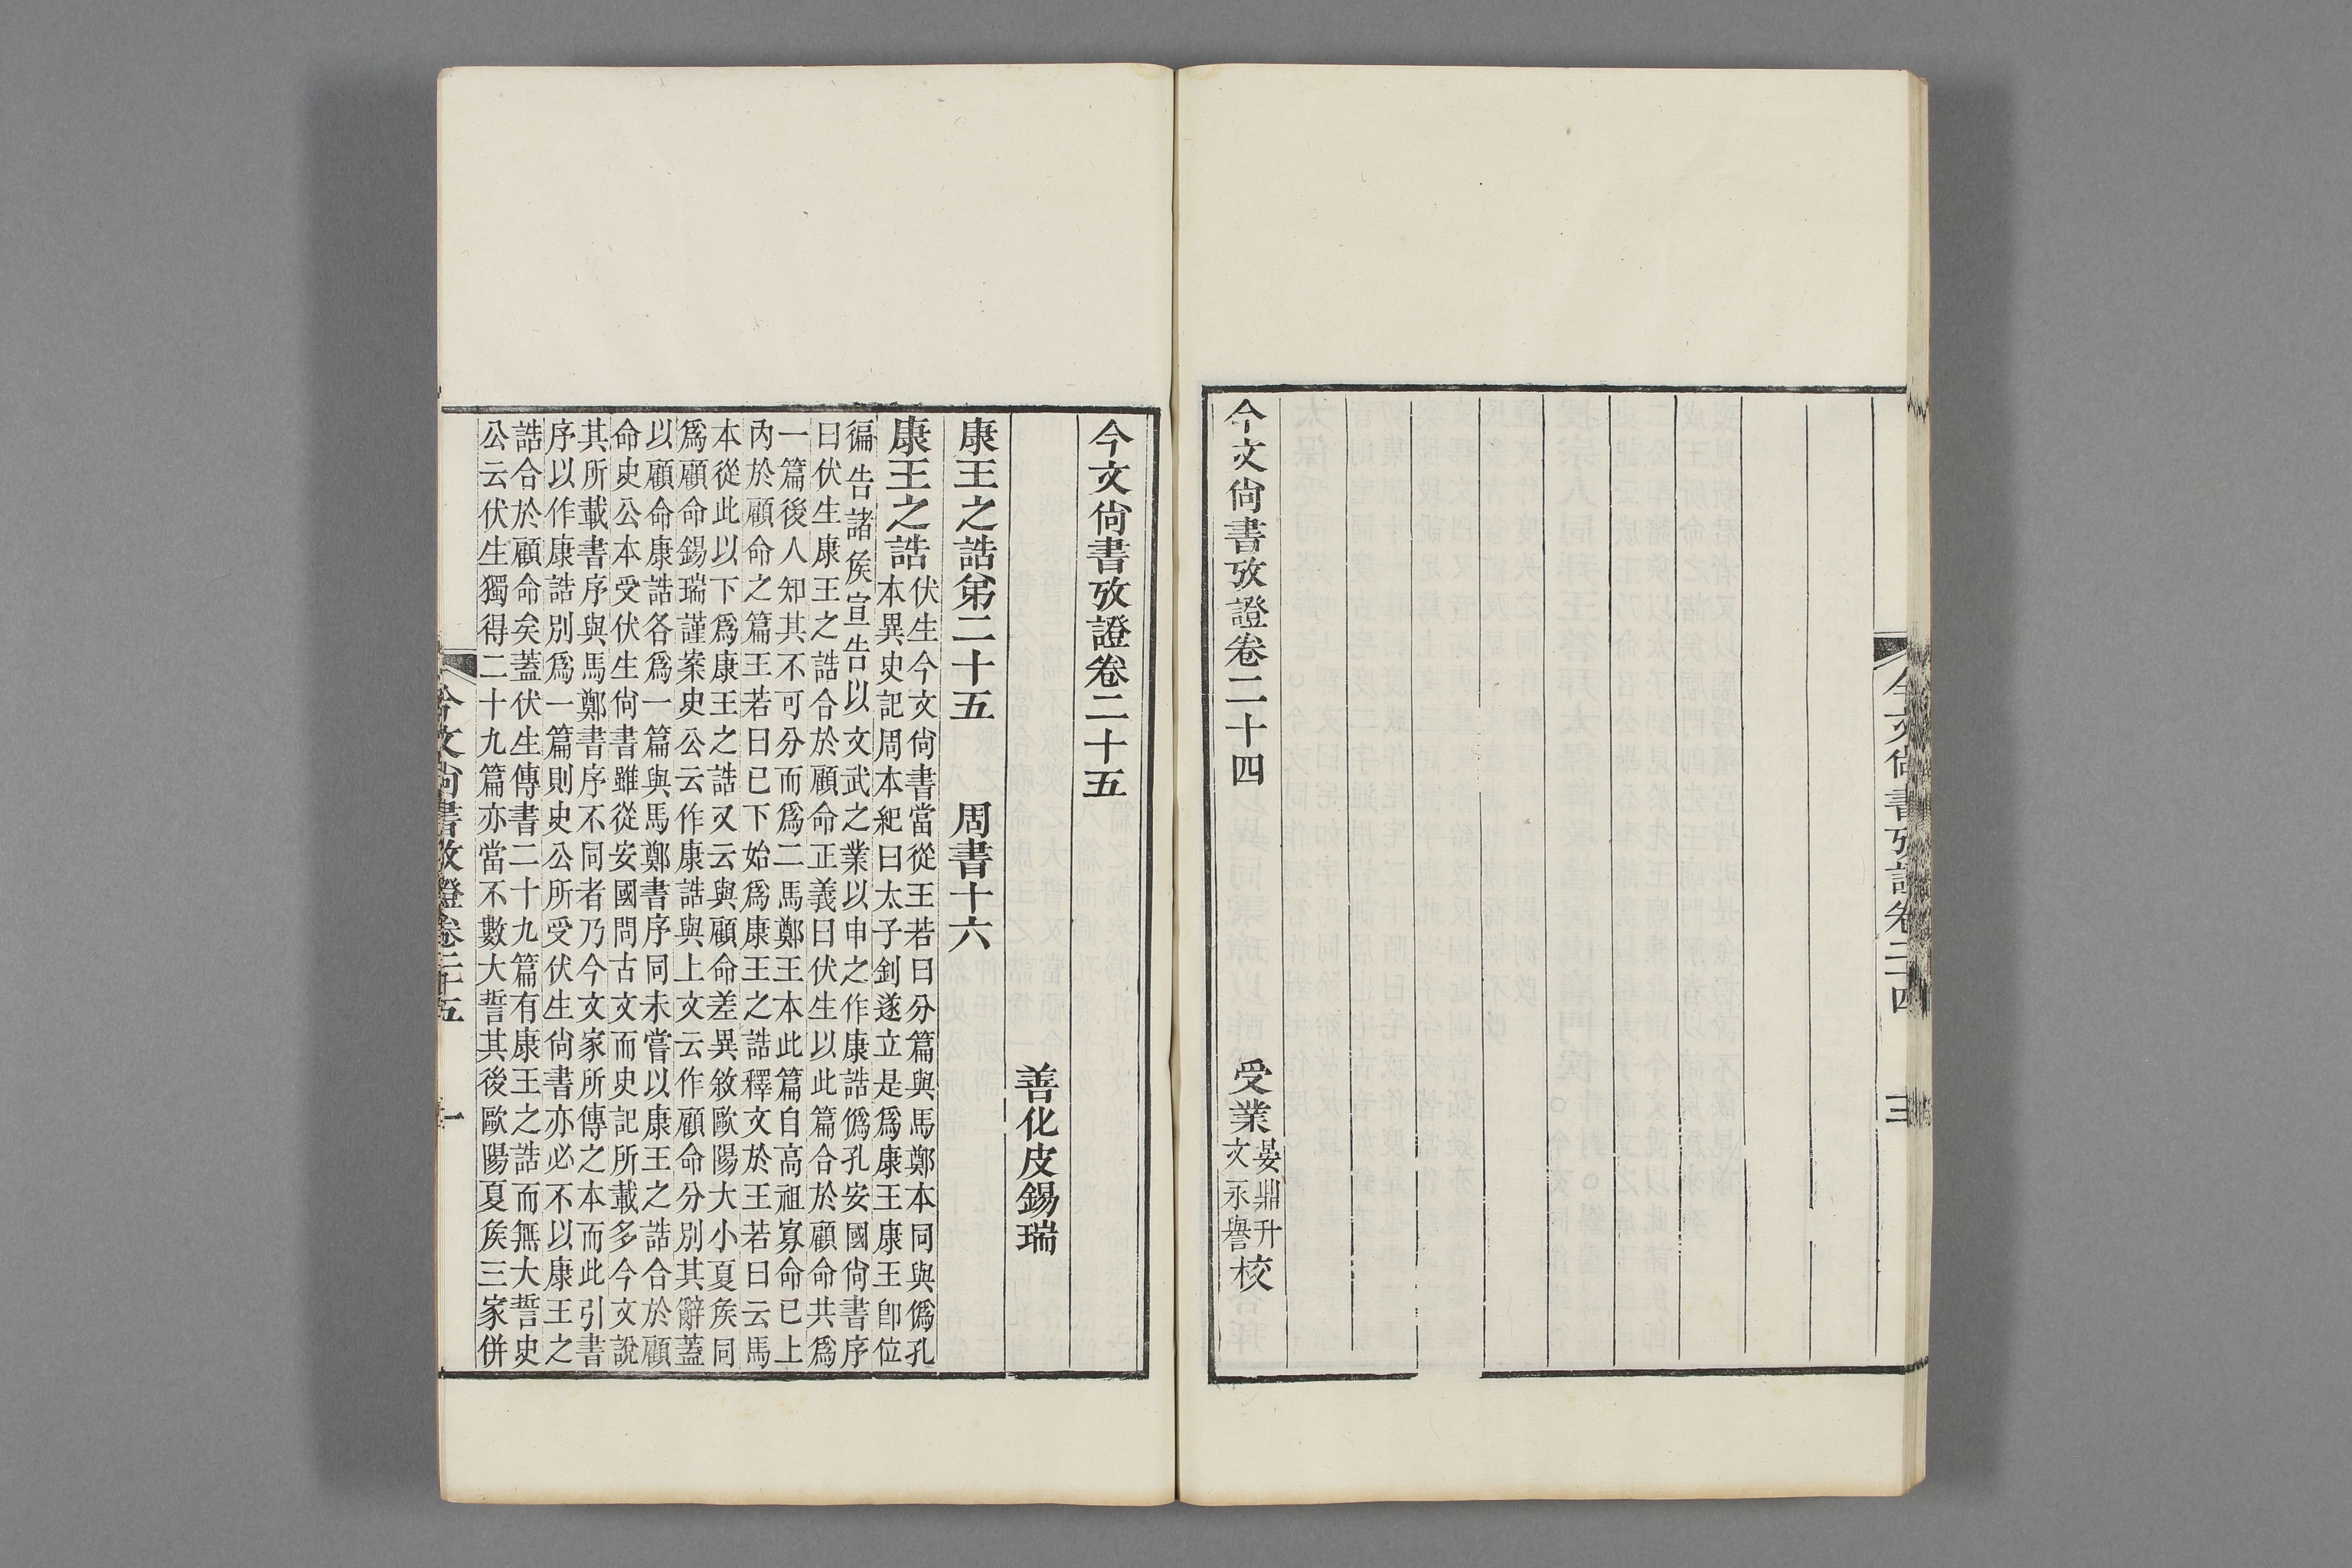 今文尚書攷證卷二十四　三
今文尚書攷證卷二十四　受業晏鼎升文永譽校
今文尚書攷證卷二十五
善化皮錫瑞
康王之誥弟二十五　周書十六
康王之誥
伏生今文尚書當從王若曰分篇與馬鄭本同與僞孔
本異史記周本紀曰太子釗遂立是爲康王康王卽位
徧告諸矦宣告以文武之業以申之作康誥僞孔安國尚書序
曰伏生康王之誥合於顧命正義曰伏生以此篇合於顧命共爲
一篇後人知其不可分而爲二馬鄭王本此篇自高祖寡命已上
內於顧命之篇王若曰已下始爲康王之誥釋文於王若曰云馬
本從此以下爲康王之誥又云與顧命差異敘歐陽大小夏矦同
爲顧命錫瑞謹案史公云作康誥與上文云作顧命分別其辭蓋
以顧命康誥各爲一篇與馬鄭書序同未嘗以康王之誥合於顧
命史公本受伏生尚書雖從安國問古文而史記所載多今文說
其所載書序與馬鄭書序不同者乃今文家所傳之本而此引書
序以作康誥別爲一篇則史公所受伏生尚書亦必不以康王之
誥合於顧命矣蓋伏生傳書二十九篇有康王之誥而無大誓史
公云伏生獨得二十九篇亦當不數大誓其後歐陽夏矦三家併
今文尚書攷證卷二十五　一